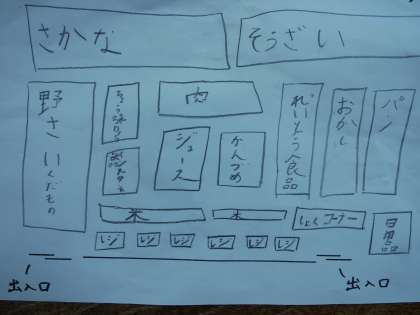 さかな
そうざい
野さい くだもの
肉
ジュース
かんづめ
れいとう食品
おかし
パン
米
コーナー
日用品
レジ
レジ
レジ
レジ
レジ
レジ
出入口
出入口